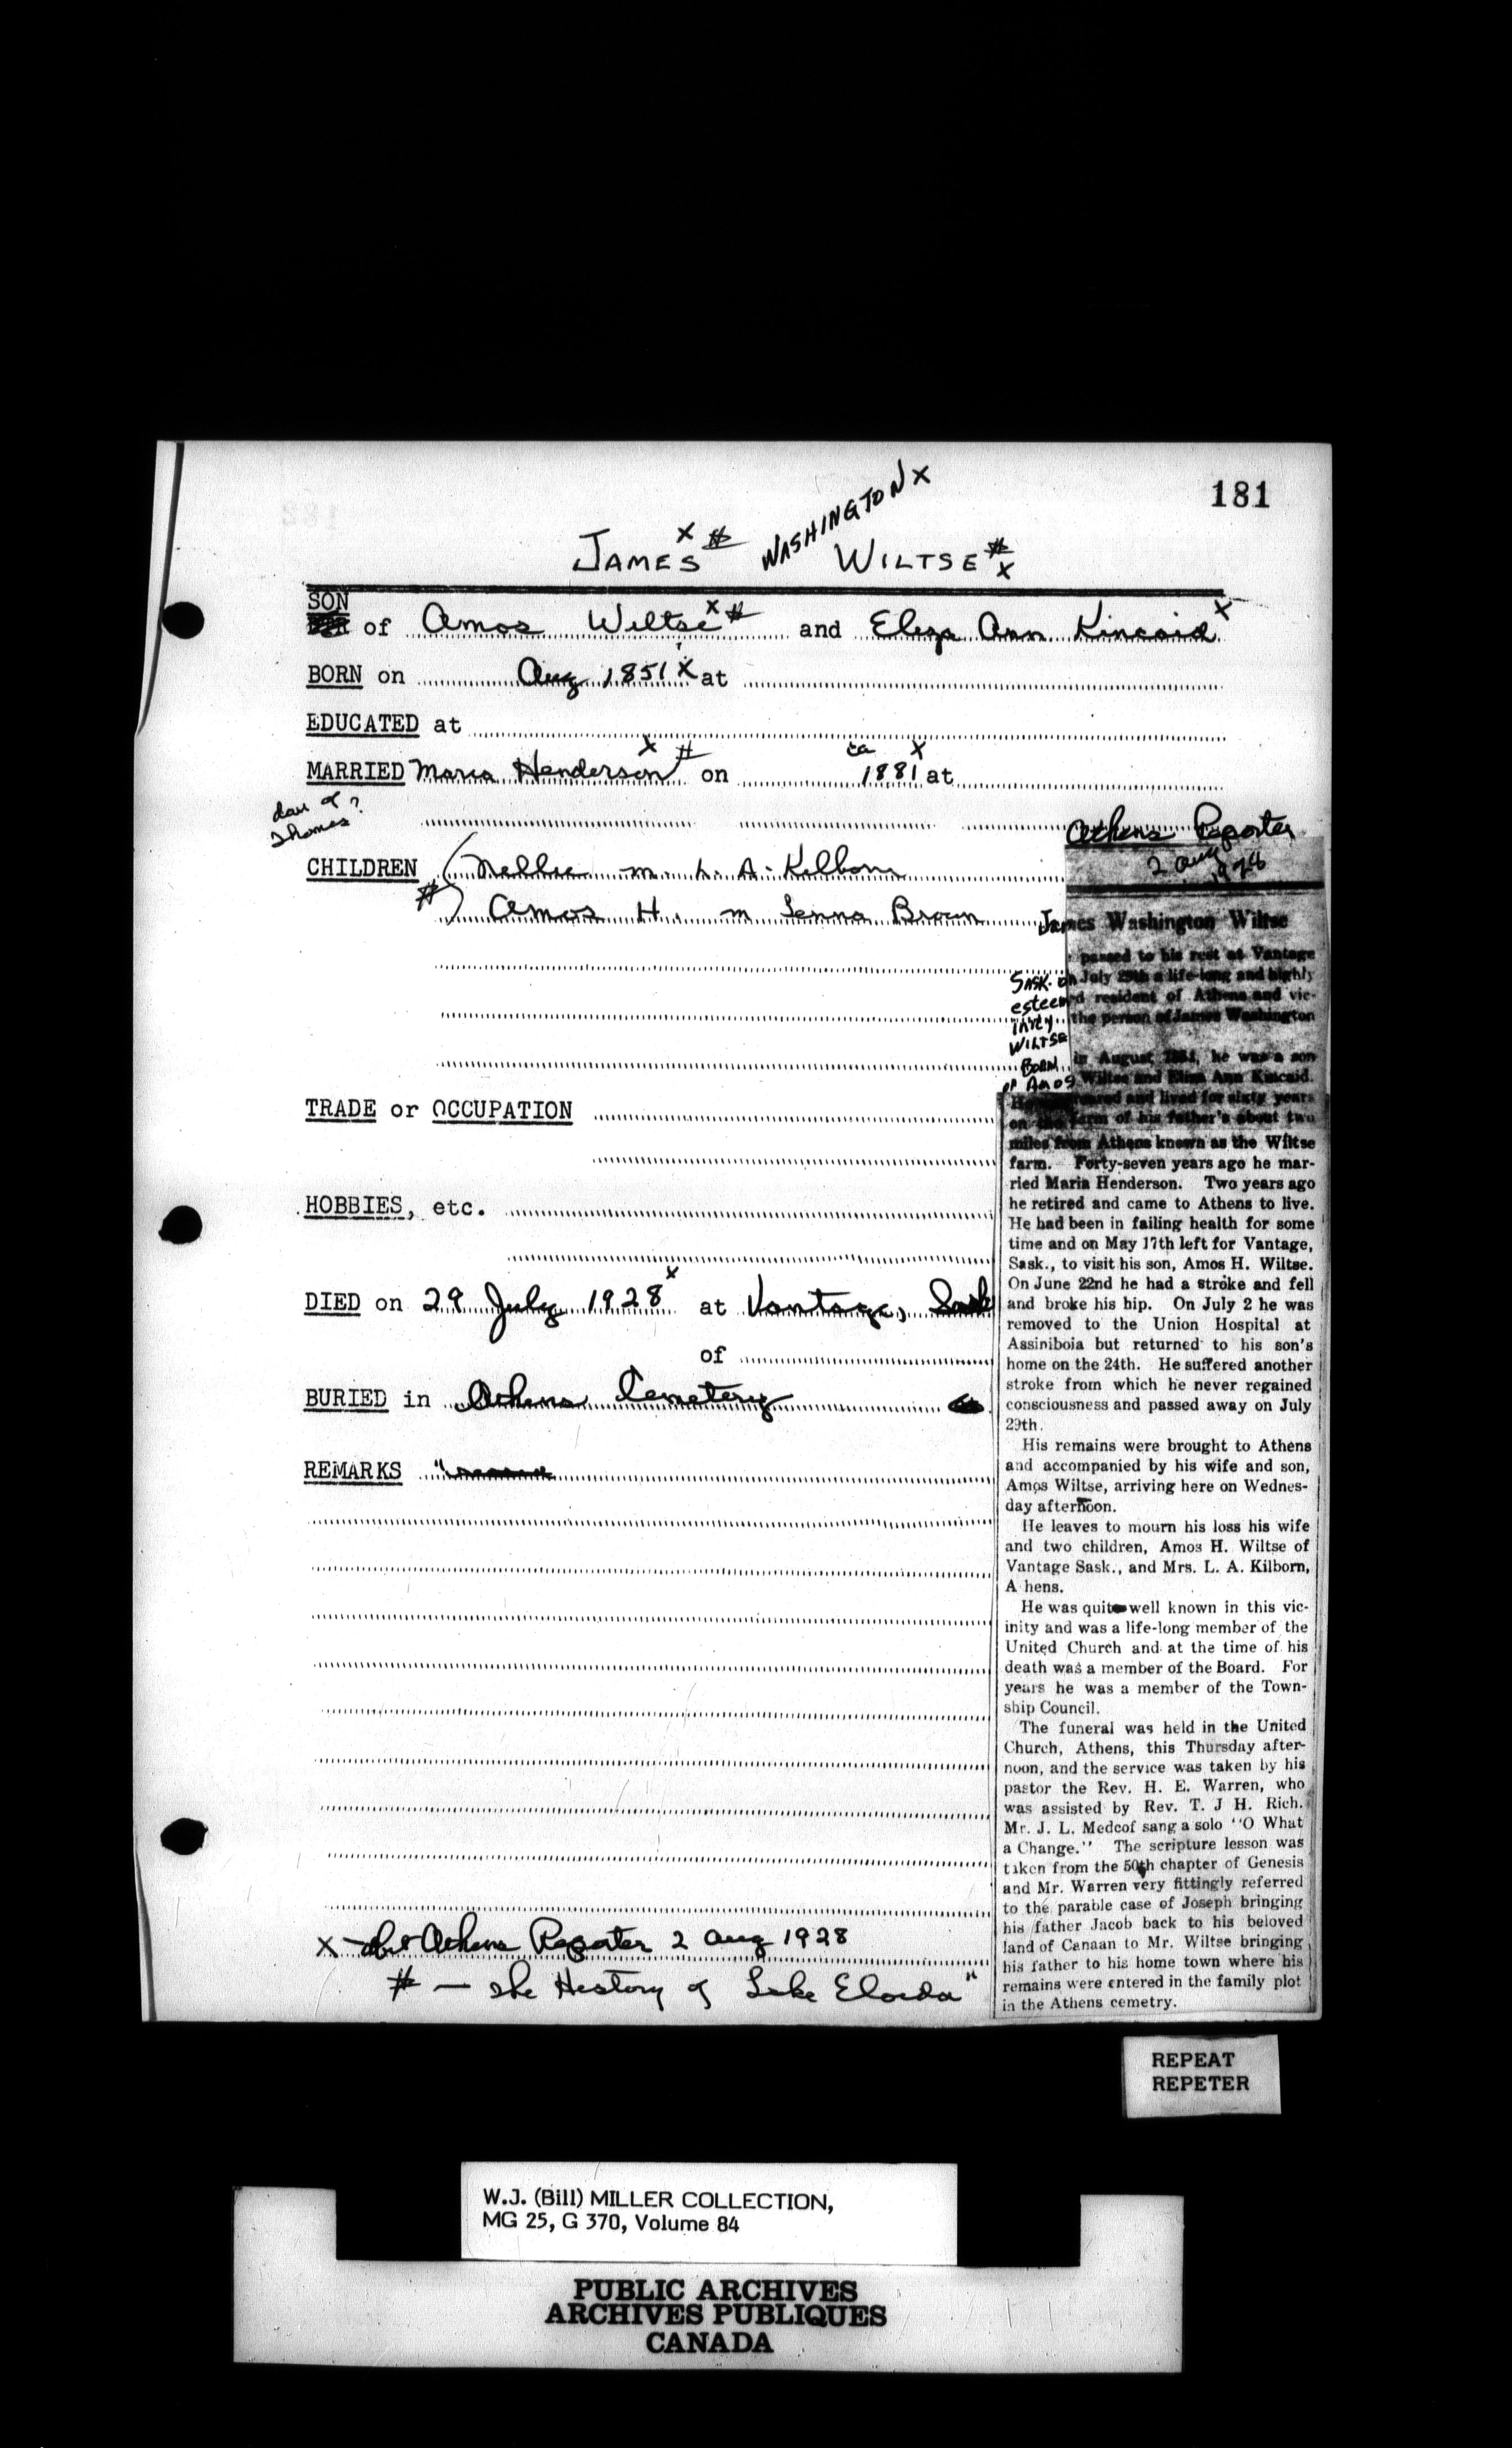 181
JAMES x # WASHINGTON x WILTSE # x
SON
of Amos Wiltse x # and Eliza Ann Kincaid x
BORN on Aug 1851 x at
EDUCATED at
MARRIED Maria Henderson x # on ca 1881 x at
dau of ?
Thomas
CHILDREN ( Nellie m. L. A. Kilborn
# ) Amos H. m Lenna Brown
TRADE or OCCUPATION
HOBBIES, etc.
DIED on 29 July 1928 x at Vantage, Sask
of
BURIED in Athens Cemetery
REMARKS "
x - obit Athens Reporter 2 Aug 1928
# - The History of Lake Eloida "
Athens Reporter
2 Aug
1928
James Washington Wiltse
passed to his rest at Vantage
SASK. on July 29th a life-long and highly
esteemed resident of Athens and vic-
inity the person of James Washington
WILTSE
BORN in August, he was a son
of AMOS Wiltse and Eliza Ann Kincaid.
He reared and lived for sixty years
on the farm of his father's about two
miles from Athens known as the Wiltse
farm. Forty-seven years ago he mar-
ried Maria Henderson. Two years ago
he retired and came to Athens to live.
He had been in failing health for some
time and on May 17th left for Vantage,
Sask., to visit his son, Amos H. Wiltse.
On June 22nd he had a stroke and fell
and broke his hip. On July 2 he was
removed to the Union Hospital at
Assiniboia but returned to his son's
home on the 24th. He suffered another
stroke from which he never regained
consciousness and passed away on July
29th.
His remains were brought to Athens
and accompanied by his wife and son,
Amos Wiltse, arriving here on Wednes-
day afternoon.
He leaves to mourn his loss his wife
and two children, Amos H. Wiltse of
Vantage Sask., and Mrs. L. A. Kilborn,
A hens.
He was quite well known in this vic-
inity and was a life-long member of the
United Church and at the time of his
death was a member of the Board. For
years he was a member of the Town-
ship Council.
The funeral was held in the United
Church, Athens, this Thursday after-
noon, and the service was taken by his
pastor the Rev. H. E. Warren, who
was assisted by Rev. T. J H. Rich.
Mr. J. L. Medcof sang a solo "O What
a Change." The scripture lesson was
taken from the 50th chapter of Genesis
and Mr. Warren very fittingly referred
to the parable case of Joseph bringing
his father Jacob back to his beloved
land of Canaan to Mr. Wiltse bringing
his father to his home town where his
remains were entered in the family plot
in the Athens cemetry.
REPEAT
REPETER
W.J. (Bill) MILLER COLLECTION,
MG 25, G 370, Volume 84
PUBLIC ARCHIVES
ARCHIVES PUBLIQUES
CANADA